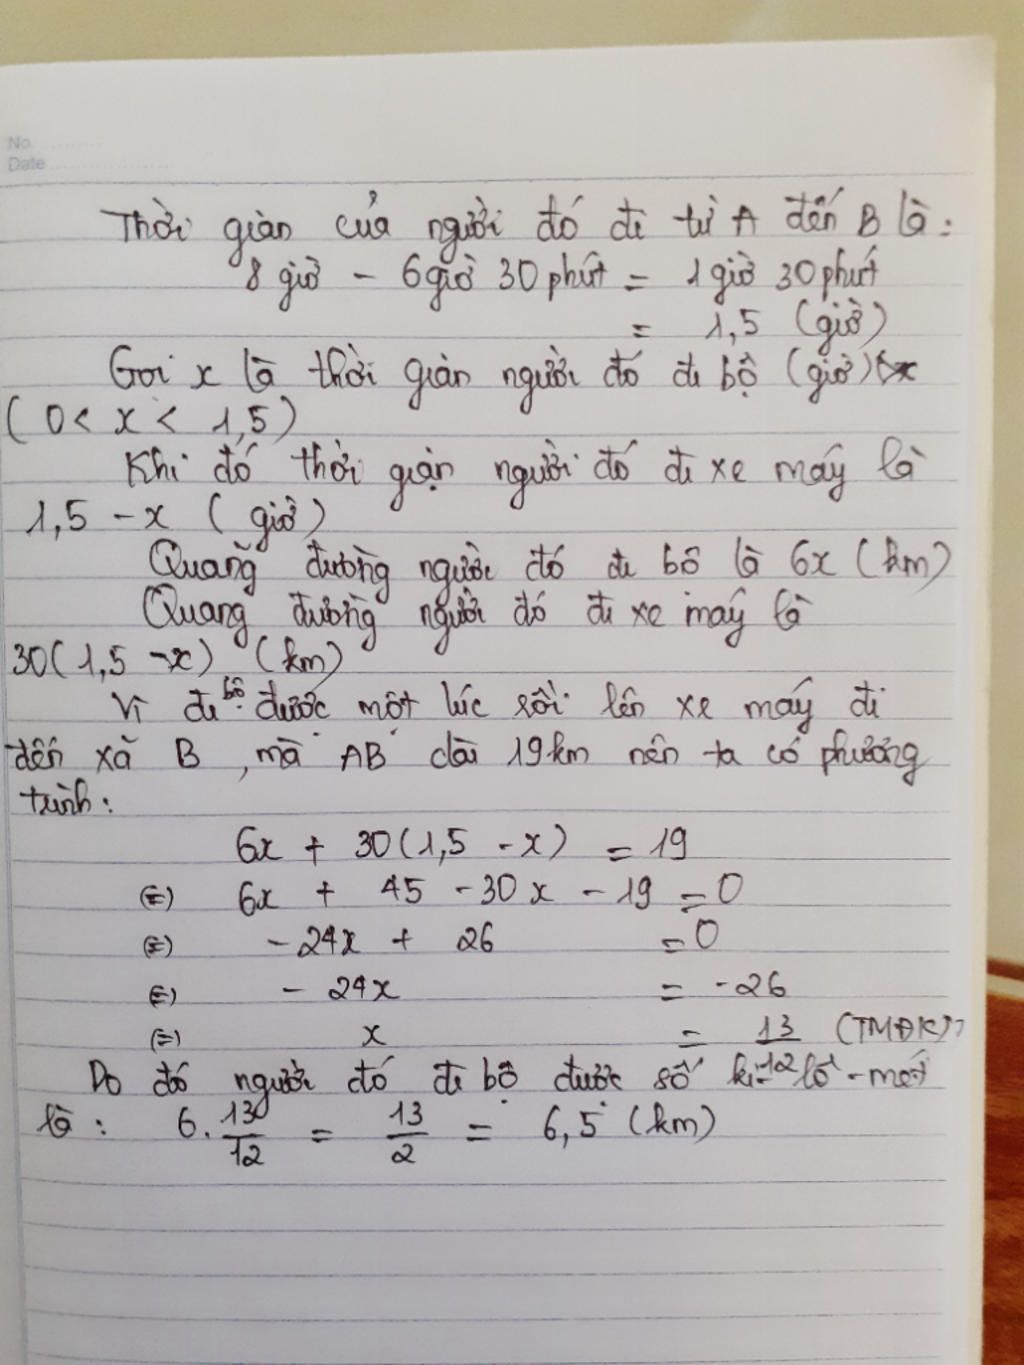 No.
Date
Thời gian của người đó đi từ A đến B là:
8 giờ - 6 giờ 30 phút = 1 giờ 30 phút
= 1,5 (giờ)
Gọi x là thời gian người đó đi bộ (giờ)
(0 < x < 1,5)
Khi đó thời gian người đó đi xe máy là
1,5 - x (giờ)
Quãng đường người đó đi bộ là 6x (km)
Quang đường người đó đi xe máy là
30(1,5 - x) (km)
Vì đi bộ được một lúc rồi lên xe máy đi
đến xã B, mà AB dài 19km nên ta có phương
trình:
6x + 30(1,5 - x) = 19
(=) 6x + 45 - 30x - 19 = 0
(=) - 24x + 26 = 0
(=) - 24x = -26
(=) x = 13/12 (TMĐK)
Do đó người đó đi bộ được số ki-lô-mét
là: 6. 13/12 = 13/2 = 6,5 (km)